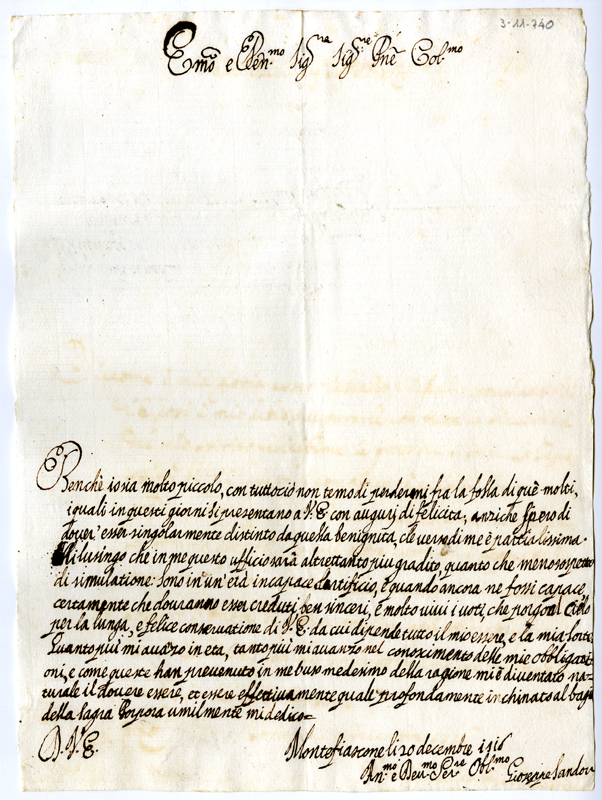 3-11-740
Emo e Ren.mo Sig.re Sig.re Pne Col.mo
Benchè io sia molto piccolo, con tuttociò non temo di perdermi fra la folla di què molti,
i quali in questi giorni si presentano a V.E. con augurj di felicità, anziche spero di
dover'esser singolarmente distinto da quella benignità, che verso di me è partialissima.
Mi lusingo che in me questo ufficio sarà altrettanto più gradito, quanto che meno sospetto
di simulatione. Sono in un'età incapace d'artificio, e quando ancora ne fossi capace,
certamente che douranno esser creduti ben sinceri, e molto vivi i voti, che porgo al Cielo
per la lunga, e felice conservatione di V.E. da cui dipende tutto il mio essere, e la mia sorte.
Quanto più mi avazo in età, tanto più mi avanzo nel conoscimento delle mie obbligati-
oni, e come queste han prevenuto in me l'uso medesimo della ragione mi è diventato na-
turale il douere essere, et essere effettivamente quale profondamente inchinato al bacio
della Sagra Porpora umilmente mi dedico=
D. V.E.
Montefiascone li 20 decembre 1716
Vn.mo e Deu.mo Ser.re Obl.mo
Gioseppe Sandou